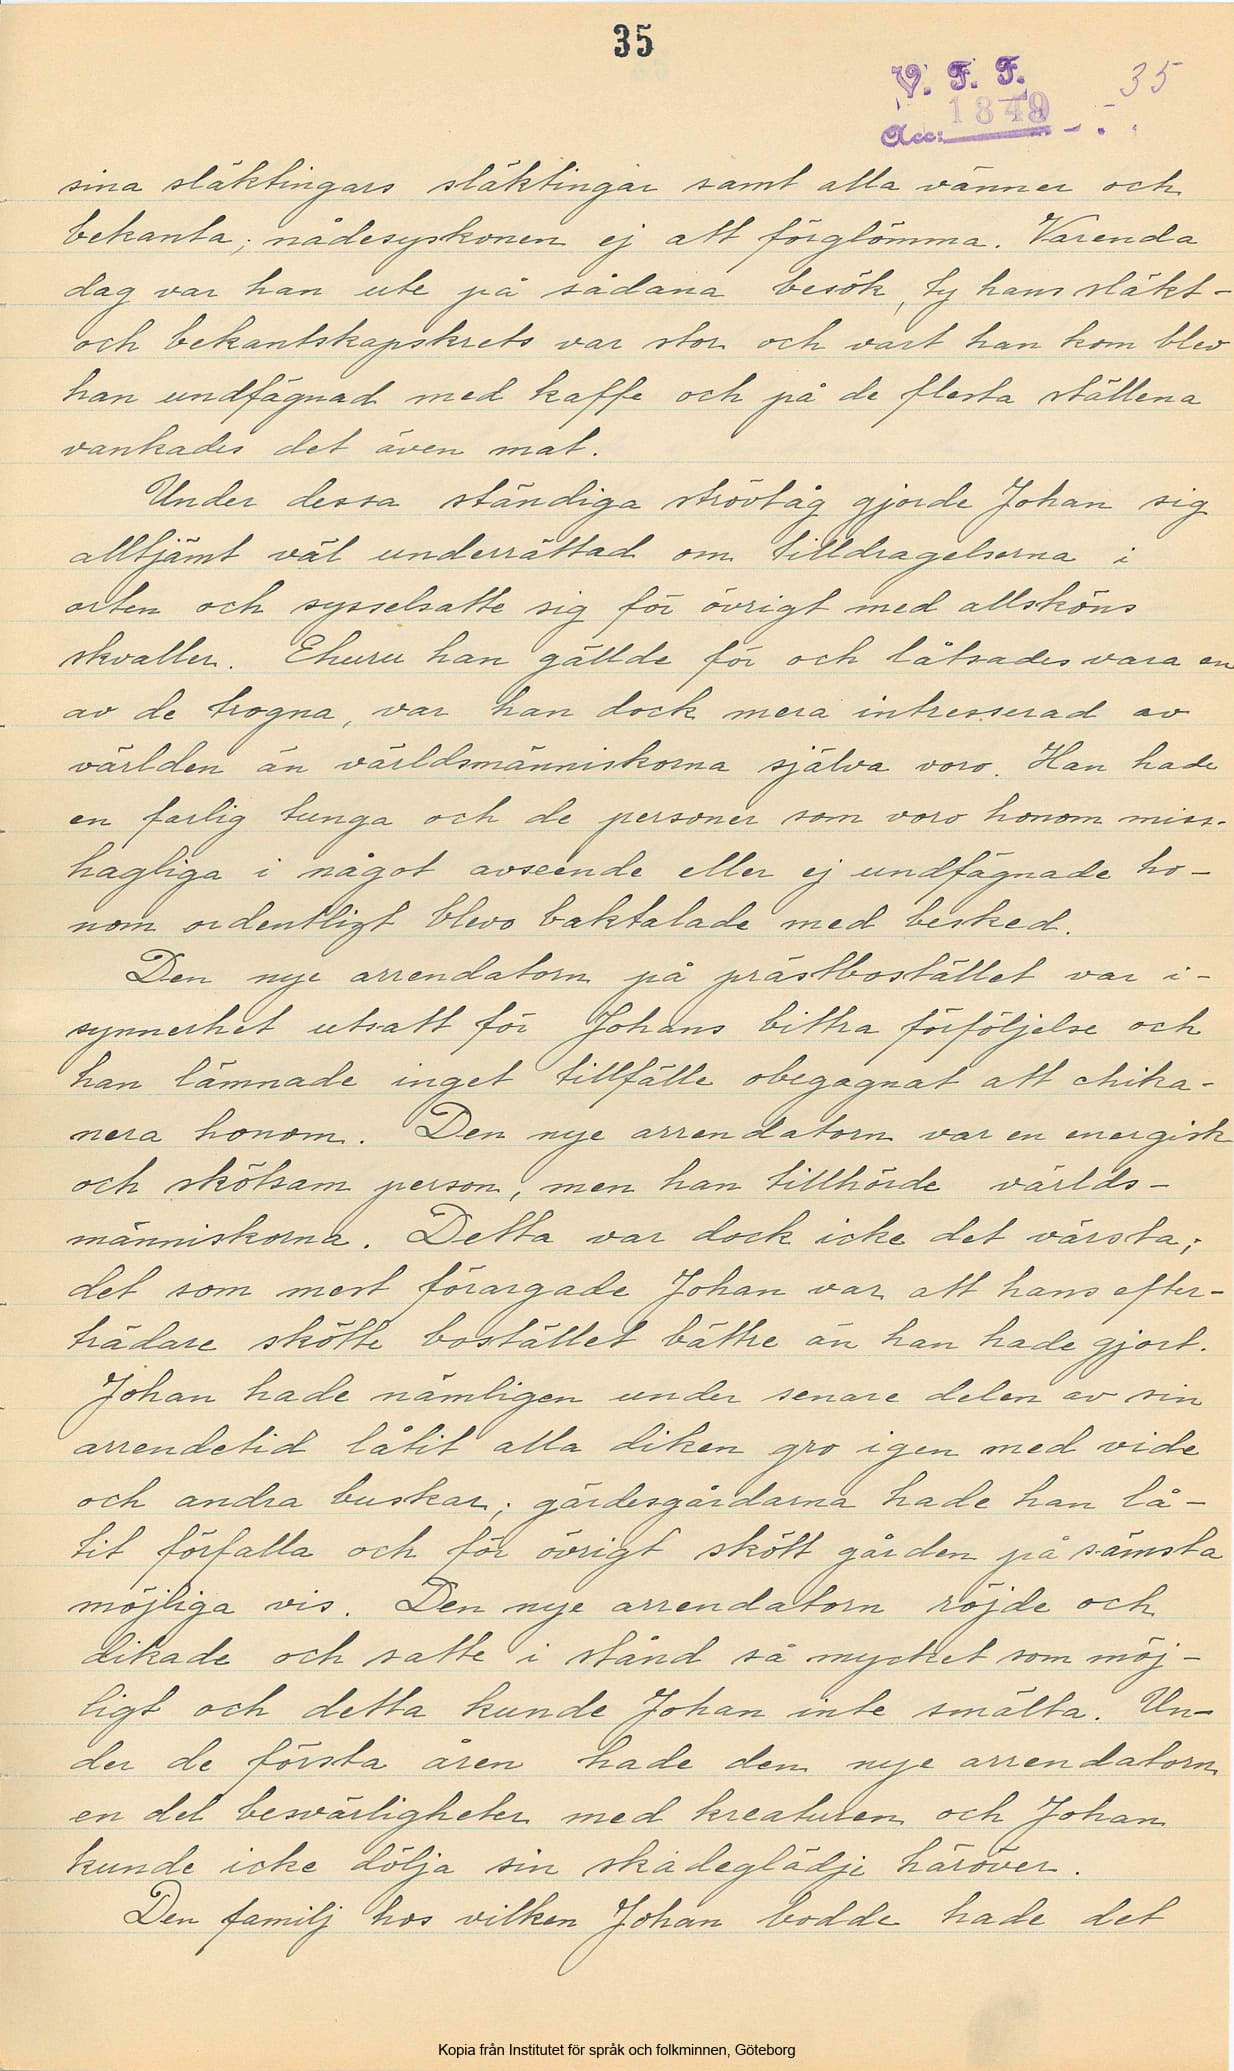 35
V. F. F. 35
1849
Acc:
sina släktingars släktingar samt alla vänner och
bekanta; nådesyskonen ej att förglömma. Varenda
dag var han ute på sådana besök, ty hans släkt-
och bekantskapskrets var stor och vart han kom blev
han undfägnad med kaffe och på de flesta ställena
vankades det även mat.
Under dessa ständiga strövtåg gjorde Johan sig
alltjämt väl underrättad om tilldragelserna i
orten och sysselsatte sig för övrigt med allsköns
skvaller. Ehuru han gällde för och låtsades vara en
av de trogna, var han dock mera intresserad av
världen än världsmänniskorna själva voro. Han hade
en farlig tunga och de personer som voro honom miss-
hagliga i något avseende eller ej undfägnade ho-
nom ordentligt blevo baktalade med besked.
Den nye arrendatorn på prästbostället var i-
synnerhet utsatt för Johans bittra förföljelse och
han lämnade inget tillfälle obegagnat att chika-
nera honom. Den nye arrendatorn var en energisk
och skötsam person, men han tillhörde världs-
människorna. Detta var dock icke det värsta;
det som mest förargade Johan var att hans efter-
trädare skötte bostället bättre än han hade gjort.
Johan hade nämligen under senare delen av sin
arrendetid låtit alla diken gro igen med vide
och andra buskar; gärdesgårdarna hade han lå-
tit förfalla och för övrigt skött gården på sämsta
möjliga vis. Den nye arrendatorn röjde och
dikade och satte i stånd så mycket som möj-
ligt och detta kunde Johan inte smälta. Un-
der de första åren hade den nye arrendatorn
en del besvärligheter med kreaturen och Johan
kunde icke dölja sin skadeglädje häröver.
Den familj hos vilken Johan bodde hade det
Kopia från Institutet för språk och folkminnen, Göteborg